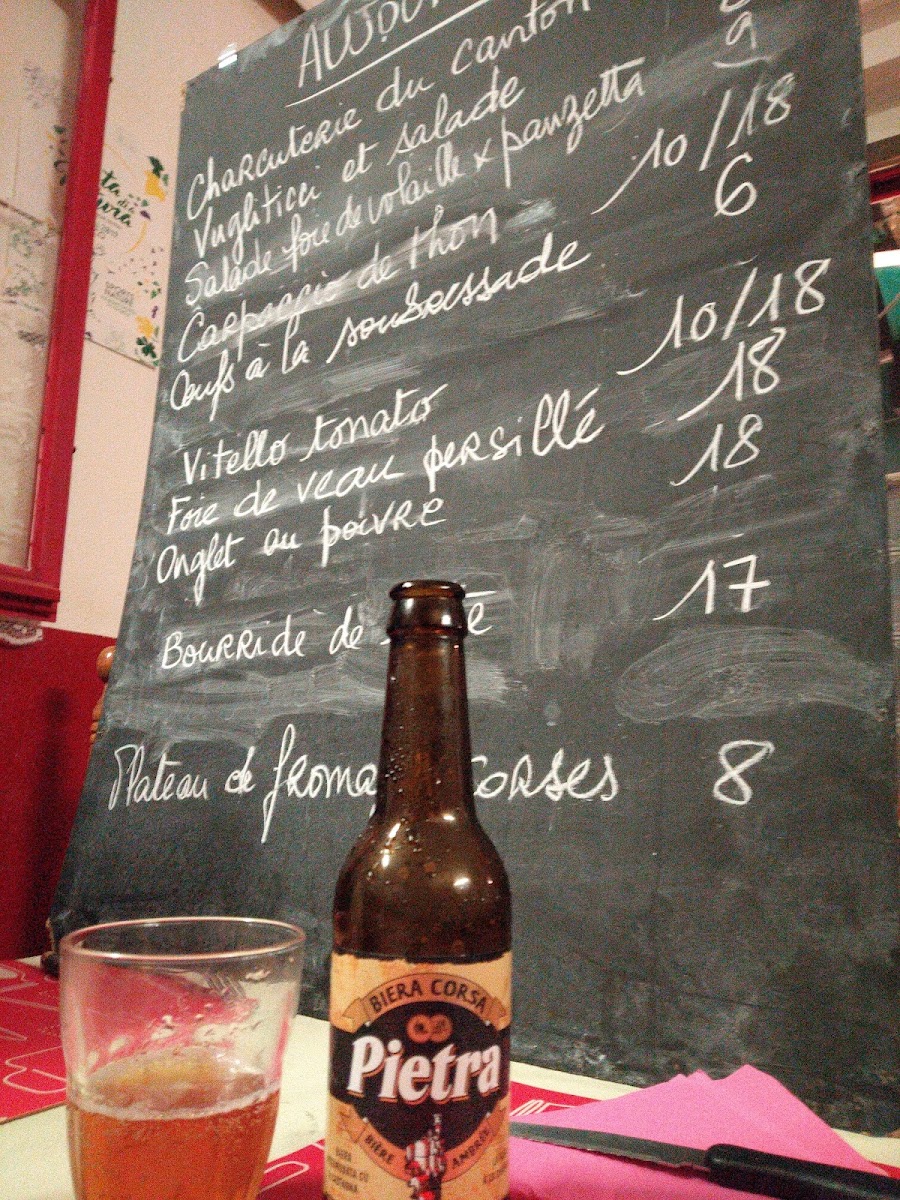 AUJOU
Charcuterie du canton
Vugliticci et salade 9
Salade foie de volaille x panzetta
Carpaccio de thon 10/18
Oeufs à la soubressade 6
Vitello tonato 10/18
Foie de veau persillé 18
Onglet au poivre 18
Bourride de 17
Plateau de froma corses 8
BIERA CORSA
Pietra
BIÈRE AMBRÉE